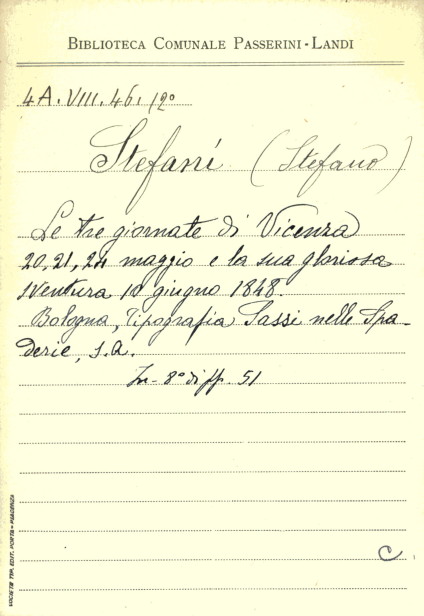 BIBLIOTECA COMUNALE PASSERINI-LANDI
4A. VIII. 46. 12º
Stefani (Stefano)
Le tre giornate di Vicenza
20, 21, 24 maggio e la sua gloriosa
sventura 10 giugno 1848.
Bologna, Tipografia Sassi nelle Spa-
derie, s.a.
In-8º di pp. 51
C
SOCIETÀ TIP. EDIT. PORTA - PIACENZA